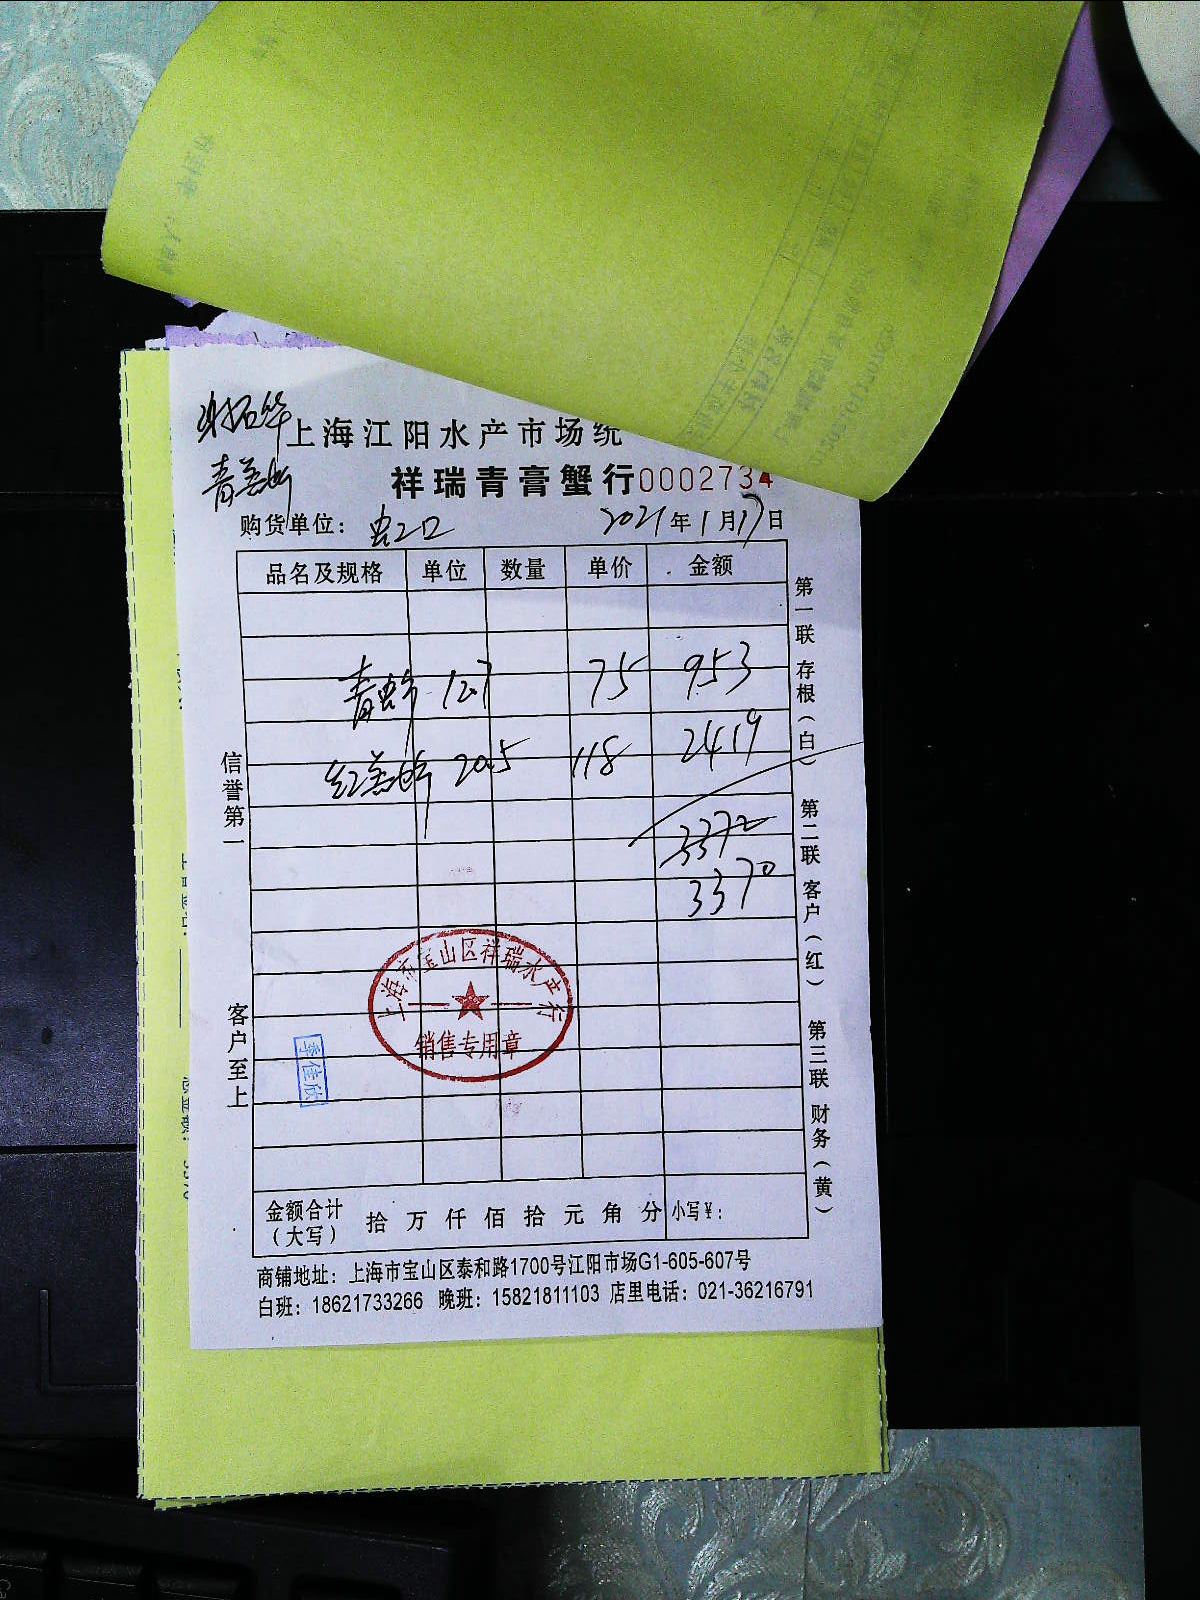 上海江阳水产市场统
祥瑞青膏蟹行0002734
购货单位: 虹口 2021年1月17日
品名及规格 单位 数量 单价 金额
12.7 75 953
20.5 118 2419
3372
3370
信誉第一
客户至上
第一联 存根(白) 第二联 客户(红) 第三联 财务(黄)
上海市宝山区祥瑞水产行
销售专用章
李佳欣
金额合计(大写) 拾 万 仟 佰 拾 元 角 分 小写¥:
商铺地址: 上海市宝山区泰和路1700号江阳市场G1-605-607号
白班: 18621733266 晚班: 15821811103 店里电话: 021-36216791